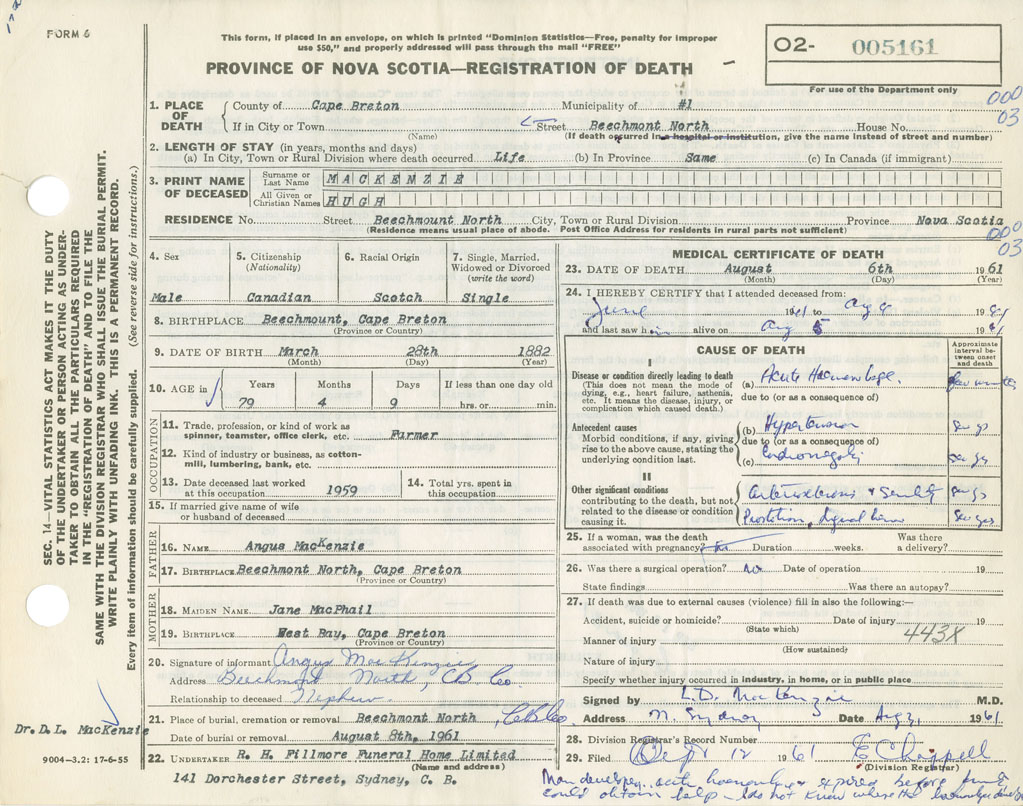 FORM 6
This form, if placed in an envelope, on which is printed "Dominion Statistics—Free, penalty for improper
use $50," and properly addressed will pass through the mail "FREE"
PROVINCE OF NOVA SCOTIA—REGISTRATION OF DEATH
02- 005161
For use of the Department only
000
03
1. PLACE OF DEATH County of Cape Breton Municipality of #1
If in City or Town Street Beechmont North House No.
(Name) (If death occurred in a hospital or institution, give the name instead of street and number)
2. LENGTH OF STAY (in years, months and days)
(a) In City, Town or Rural Division where death occurred Life (b) In Province Same (c) In Canada (if immigrant)
3. PRINT NAME OF DECEASED Surname or Last Name MACKENZIE
All Given or Christian Names HUGH
RESIDENCE No. Street Beechmount North City, Town or Rural Division Province Nova Scotia
(Residence means usual place of abode. Post Office Address for residents in rural parts not sufficient)
000
03
4. Sex Male
5. Citizenship (Nationality) Canadian
6. Racial Origin Scotch
7. Single, Married, Widowed or Divorced (write the word) Single
8. BIRTHPLACE Beechmount, Cape Breton
(Province or Country)
9. DATE OF BIRTH March 28th 1882
(Month) (Day) (Year)
10. AGE in Years Months Days If less than one day old
79 4 9 hrs. or min.
OCCUPATION
11. Trade, profession, or kind of work as
spinner, teamster, office clerk, etc. Farmer
12. Kind of industry or business, as cotton-
mill, lumbering, bank, etc.
13. Date deceased last worked at this occupation 1959
14. Total yrs. spent in this occupation
15. If married give name of wife
or husband of deceased
FATHER
16. NAME Angus MacKenzie
17. BIRTHPLACE Beechmont North, Cape Breton
(Province or Country)
MOTHER
18. MAIDEN NAME Jane MacPhail
19. BIRTHPLACE West Bay, Cape Breton
(Province or Country)
20. Signature of informant Angus MacKenzie
Address Beechmont North, CB Co.
Relationship to deceased Nephew
21. Place of burial, cremation or removal Beechmont North, CB Co
Date of burial or removal August 8th, 1961
22. UNDERTAKER R. H. Fillmore Funeral Home Limited
(Name and address)
141 Dorchester Street, Sydney, C. B.
MEDICAL CERTIFICATE OF DEATH
23. DATE OF DEATH August 6th 1961
(Month) (Day) (Year)
24. I HEREBY CERTIFY that I attended deceased from:
June 1961 to Aug 1961
and last saw him alive on Aug 5 1961
CAUSE OF DEATH
Approximate interval between onset and death
I
Disease or condition directly leading to death
(This does not mean the mode of
dying, e.g., heart failure, asthenia,
etc. It means the disease, injury, or
complication which caused death.)
(a) Acute Haemorrhage. few minutes
due to (or as a consequence of)
Antecedent causes
Morbid conditions, if any, giving
rise to the above cause, stating the
underlying condition last.
(b) Hypertension
due to (or as a consequence of)
(c)
II
Other significant conditions
contributing to the death, but not
related to the disease or condition
causing it.
& Senility
25. If a woman, was the death Was there
associated with pregnancy? Duration weeks. a delivery?
26. Was there a surgical operation? No Date of operation 19
State findings Was there an autopsy?
27. If death was due to external causes (violence) fill in also the following:—
Accident, suicide or homicide? Date of injury 19
(State which)
443X
Manner of injury
(How sustained)
Nature of injury
Specify whether injury occurred in industry, in home, or in public place
Signed by MacKenzie M.D.
Address N. Sydney Date Aug 1961
28. Division Registrar's Record Number
29. Filed 12 1961 E Chappell
(Division Registrar)
Man developed acute haemorrhage & expired before family
could obtain help - I do not know where the haemorrhage
SEC. 14—VITAL STATISTICS ACT MAKES IT THE DUTY
OF THE UNDERTAKER OR PERSON ACTING AS UNDER-
TAKER TO OBTAIN ALL THE PARTICULARS REQUIRED
IN THE "REGISTRATION OF DEATH" AND TO FILE THE
SAME WITH THE DIVISION REGISTRAR WHO SHALL ISSUE THE BURIAL PERMIT.
WRITE PLAINLY WITH UNFADING INK. THIS IS A PERMANENT RECORD.
Every item of information should be carefully supplied. (See reverse side for instructions.)
Dr. D. L. MacKenzie
9004-3.2: 17-6-55